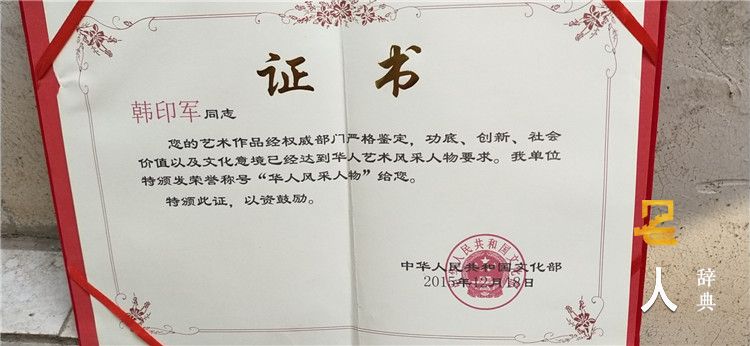 证 书
韩印军同志
您的艺术作品经权威部门严格鉴定，功底、创新、社会
价值以及文化意境已经达到华人艺术风采人物要求。我单位
特颁发荣誉称号“华人风采人物”给您。
特颁此证，以资鼓励。
中华人民共和国文化部
2015年12月18日
中华人民共和国文化部
人
辞典